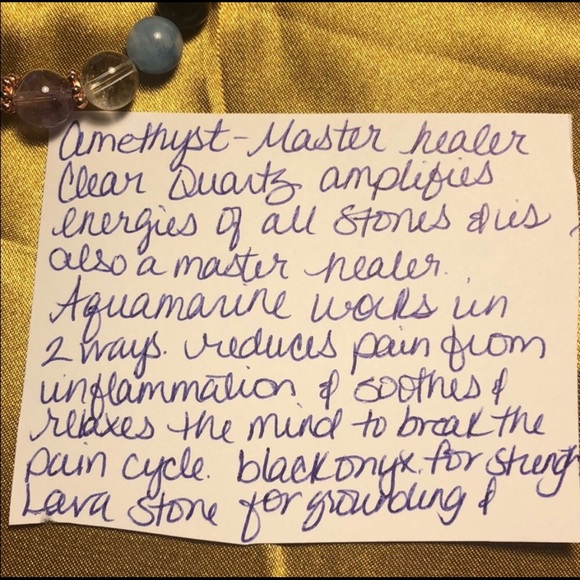 Amethyst - Master healer
Clear Quartz amplifies
energies of all stones & is
also a master healer.
Aquamarine works in
2 ways. reduces pain from
inflammation & soothes &
relaxes the mind to break the
pain cycle. black onyx for strength
Lava stone for grounding &